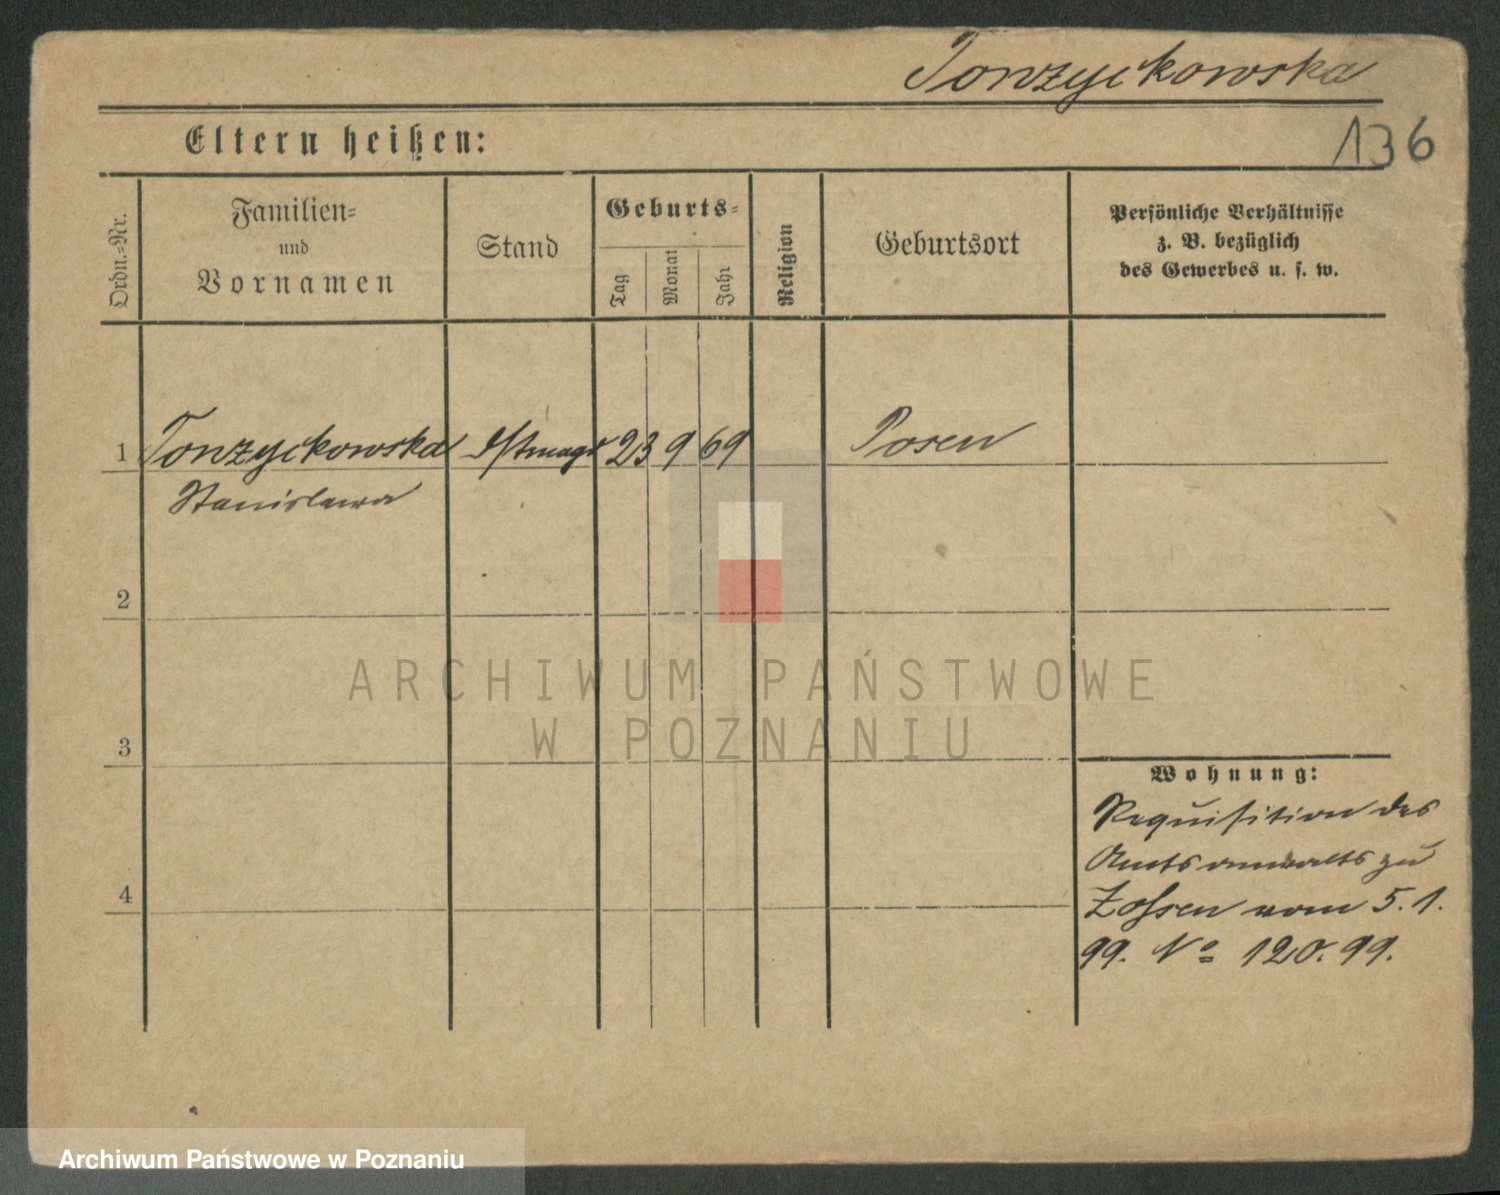 Tonzyckowska
136
Eltern heißen:
Ordn.-Nr.
Familien-
und
Vornamen
Stand
Geburts-
Tag
Monat
Jahr
Religion
Geburtsort
Persönliche Verhältnisse
z. B. bezüglich
des Gewerbes u. s. w.
1 Tonzyckowska 23 9 69 Posen
Stanislawa
2
3
4
Wohnung:
Requisition des
Amtsanwalts zu
Zossen vom 5. 1.
99. No 120. 99.
ARCHIWUM PAŃSTWOWE
W POZNANIU
Archiwum Państwowe w Poznaniu